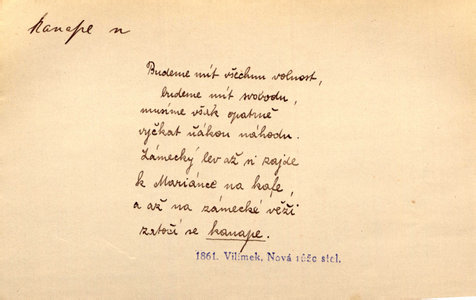 kanape n
Budeme mít všechnu volnost,
budeme mít svobodu,
musíme však opatrně
vyčkat ňákou náhodu.
Zámecký lev až si zajde
k Mariánce na kafe,
a až na zámecké věži
zatočí se kanape.
1861. Vilímek, Nová růže stol.